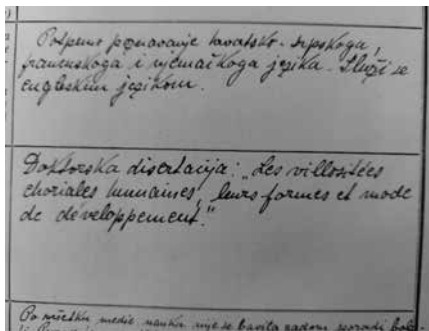 Potpuno poznavanje hrvatsko-srpskoga,
francuskoga i njemačkoga jezika. Služi se
engleskim jezikom.
Doktorska disertacija: „Les villositées
choriales humaines, leurs formes et mode
de développement."
Po svršetku medic. nauka nije se bavila radom poradi